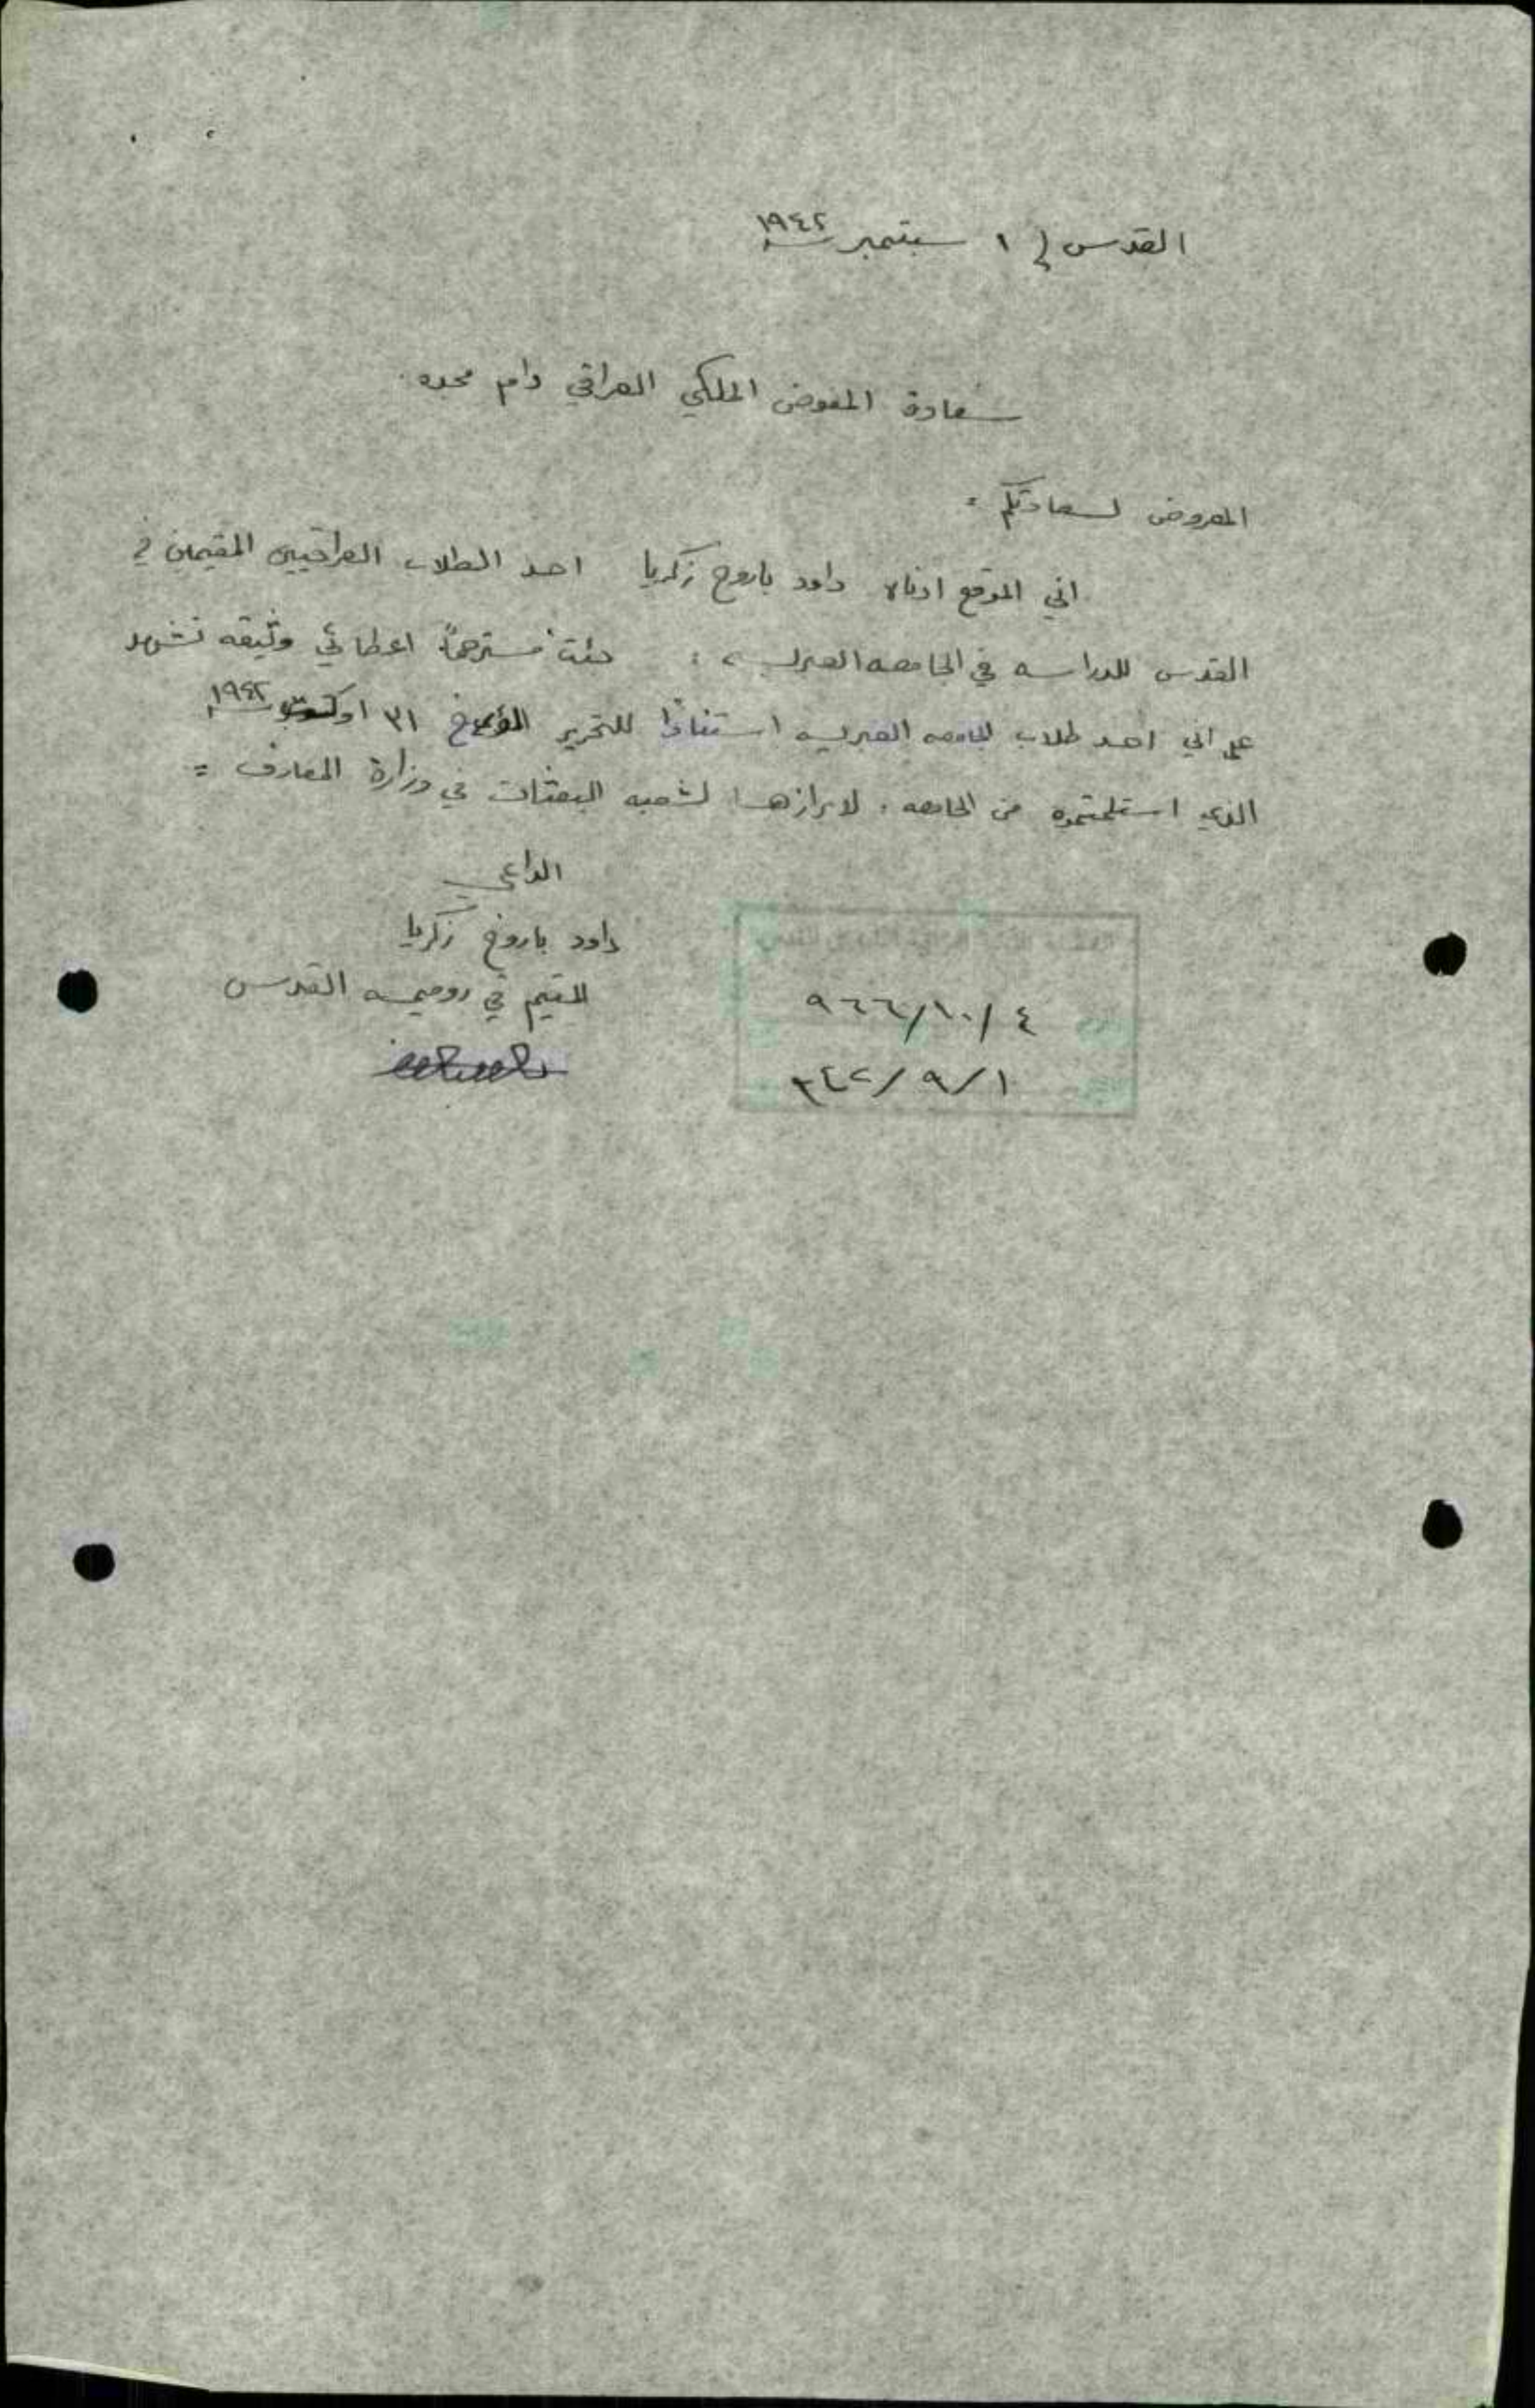 القدس في ١ سبتمبر ١٩٤٢
سعادة المفوض الملكي العراقي دام مجده
المعروض لسعادتكم :
اني الموقع ادناه داود باروخ زكريا احد الطلاب العراقيين المقيمين في
القدس للدراسه في الجامعه العبريه : جئت مسترحماً اعطائي وثيقه تشهد
على اني احد طلاب الجامعه العبريه استناداً للتحرير المؤرخ ٣١ ١٩٤٢
الذي استلمته من الجامعه . لابرازها لشعبه البعثات في وزارة المعارف =
الداعي
داود باروخ زكريا
المقيم في روميمه القدس
٤/١٠/٩٦٦
١/٩/٩٤٢